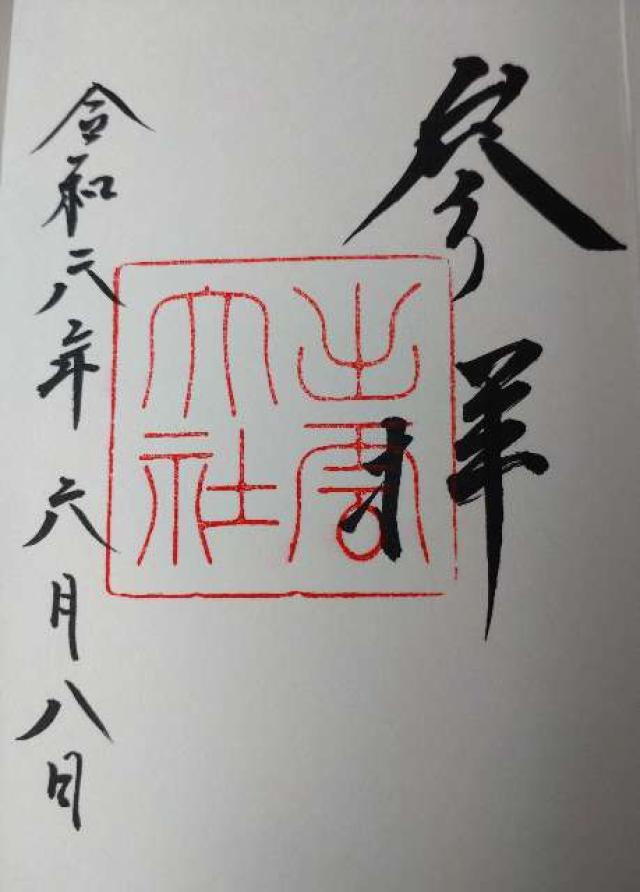 参拝
出雲
大社
令和六年六月八日